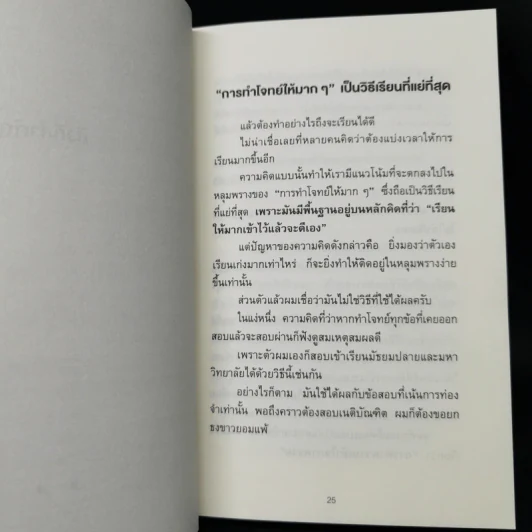 “การทำโจทย์ให้มาก ๆ” เป็นวิธีเรียนที่แย่ที่สุด
แล้วต้องทำอย่างไรถึงจะเรียนได้ดี
ไม่น่าเชื่อเลยที่หลายคนคิดว่าต้องแบ่งเวลาให้การ
เรียนมากขึ้นอีก
ความคิดแบบนั้นทำให้เรามีแนวโน้มที่จะตกลงไปใน
หลุมพรางของ “การทำโจทย์ให้มาก ๆ” ซึ่งถือเป็นวิธีเรียน
ที่แย่ที่สุด เพราะมันมีพื้นฐานอยู่บนหลักคิดที่ว่า “เรียน
ให้มากเข้าไว้แล้วจะดีเอง”
แต่ปัญหาของความคิดดังกล่าวคือ ยิ่งมองว่าตัวเอง
เรียนเก่งมากเท่าไหร่ ก็จะยิ่งทำให้ติดอยู่ในหลุมพรางง่าย
ขึ้นเท่านั้น
ส่วนตัวแล้วผมเชื่อว่ามันไม่ใช่วิธีที่ใช้ได้ผลครับ
ในแง่หนึ่ง ความคิดที่ว่าหากทำโจทย์ทุกข้อที่เคยออก
สอบแล้วจะสอบผ่านก็ฟังดูสมเหตุสมผลดี
เพราะตัวผมเองก็สอบเข้าเรียนมัธยมปลายและมหา
วิทยาลัยได้ด้วยวิธีนี้เช่นกัน
อย่างไรก็ตาม มันใช้ได้ผลกับข้อสอบที่เน้นการท่อง
จำเท่านั้น พอถึงคราวต้องสอบเนติบัณฑิต ผมก็ต้องขอยก
ธงขาวยอมแพ้
25